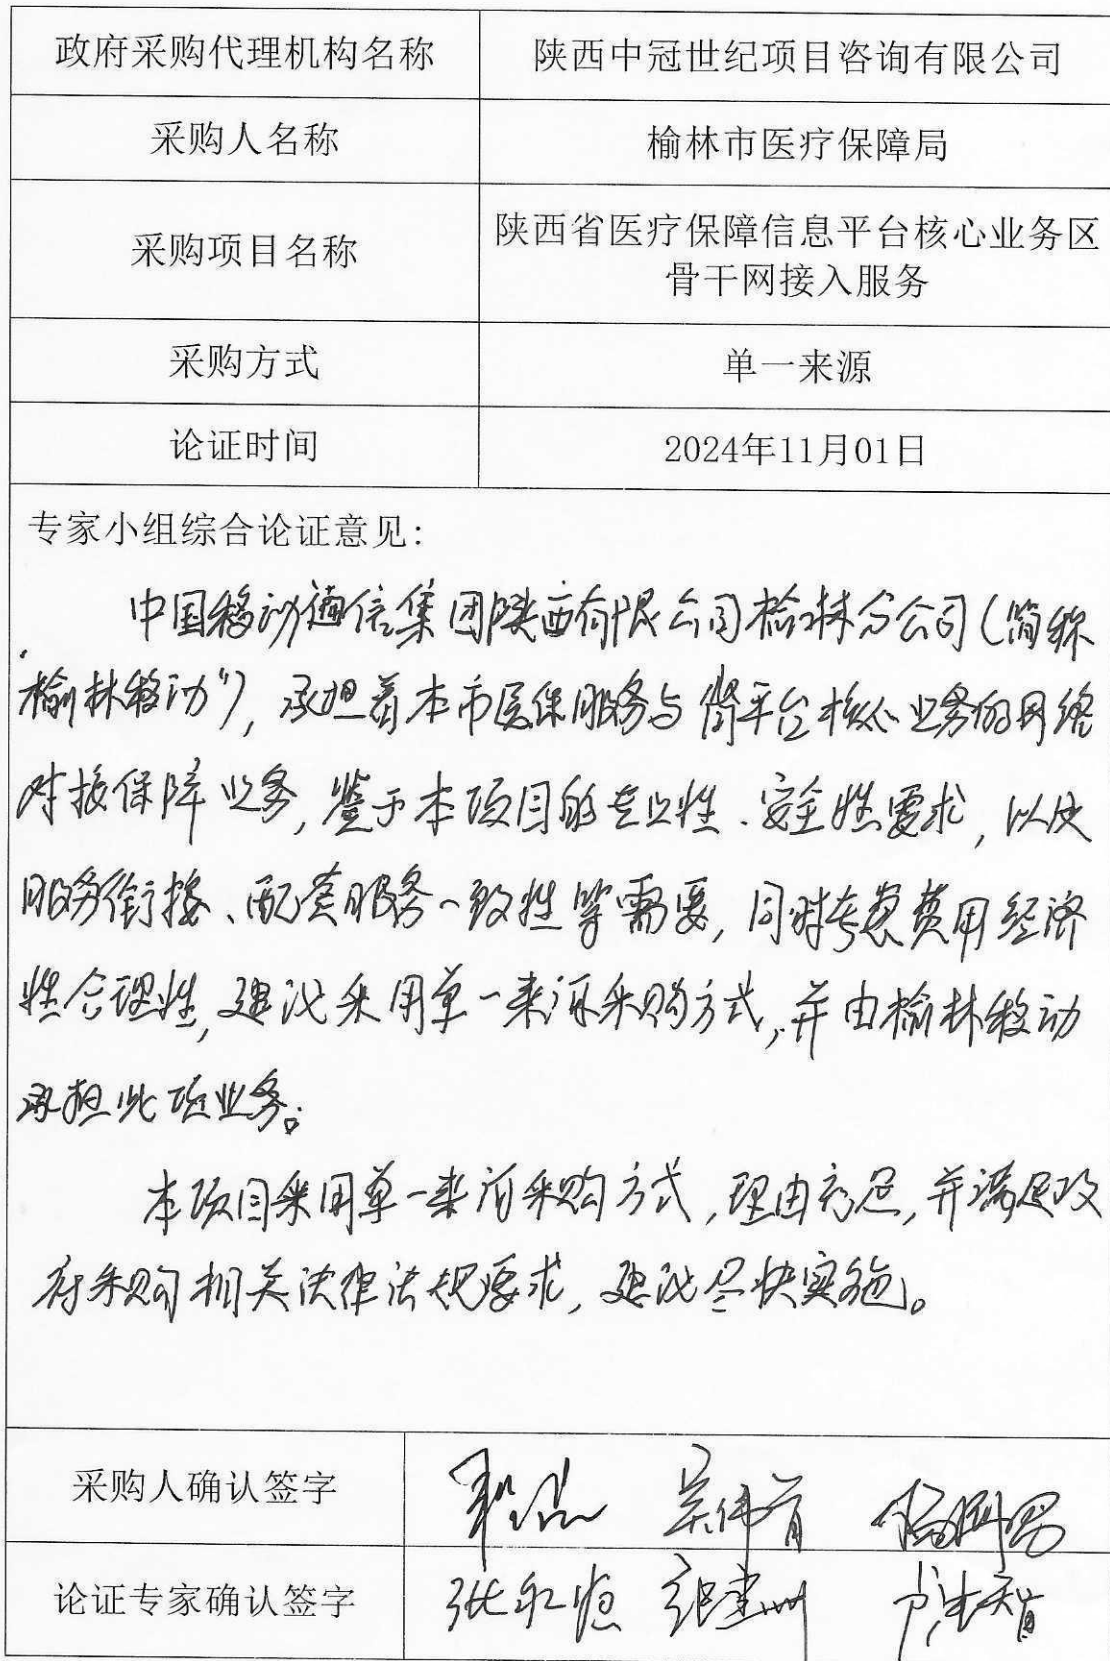 政府采购代理机构名称 陕西中冠世纪项目咨询有限公司
采购人名称 榆林市医疗保障局
采购项目名称 陕西省医疗保障信息平台核心业务区
骨干网接入服务
采购方式 单一来源
论证时间 2024年11月01日
专家小组综合论证意见:
中国移动通信集团陕西有限公司榆林分公司(简称
“榆林移动”), 承担着本市医保服务与省平台核心业务的网络
对接保障业务, 鉴于本项目的专业性、安全性要求, 以及
服务衔接、配套服务一致性等需要, 同时考虑费用经济
性合理性, 建议采用单一来源采购方式, 并由榆林移动
承担此项业务。
本项目采用单一来源采购方式, 理由充足, 并满足政
府采购相关法律法规要求, 建议尽快实施。
采购人确认签字
论证专家确认签字